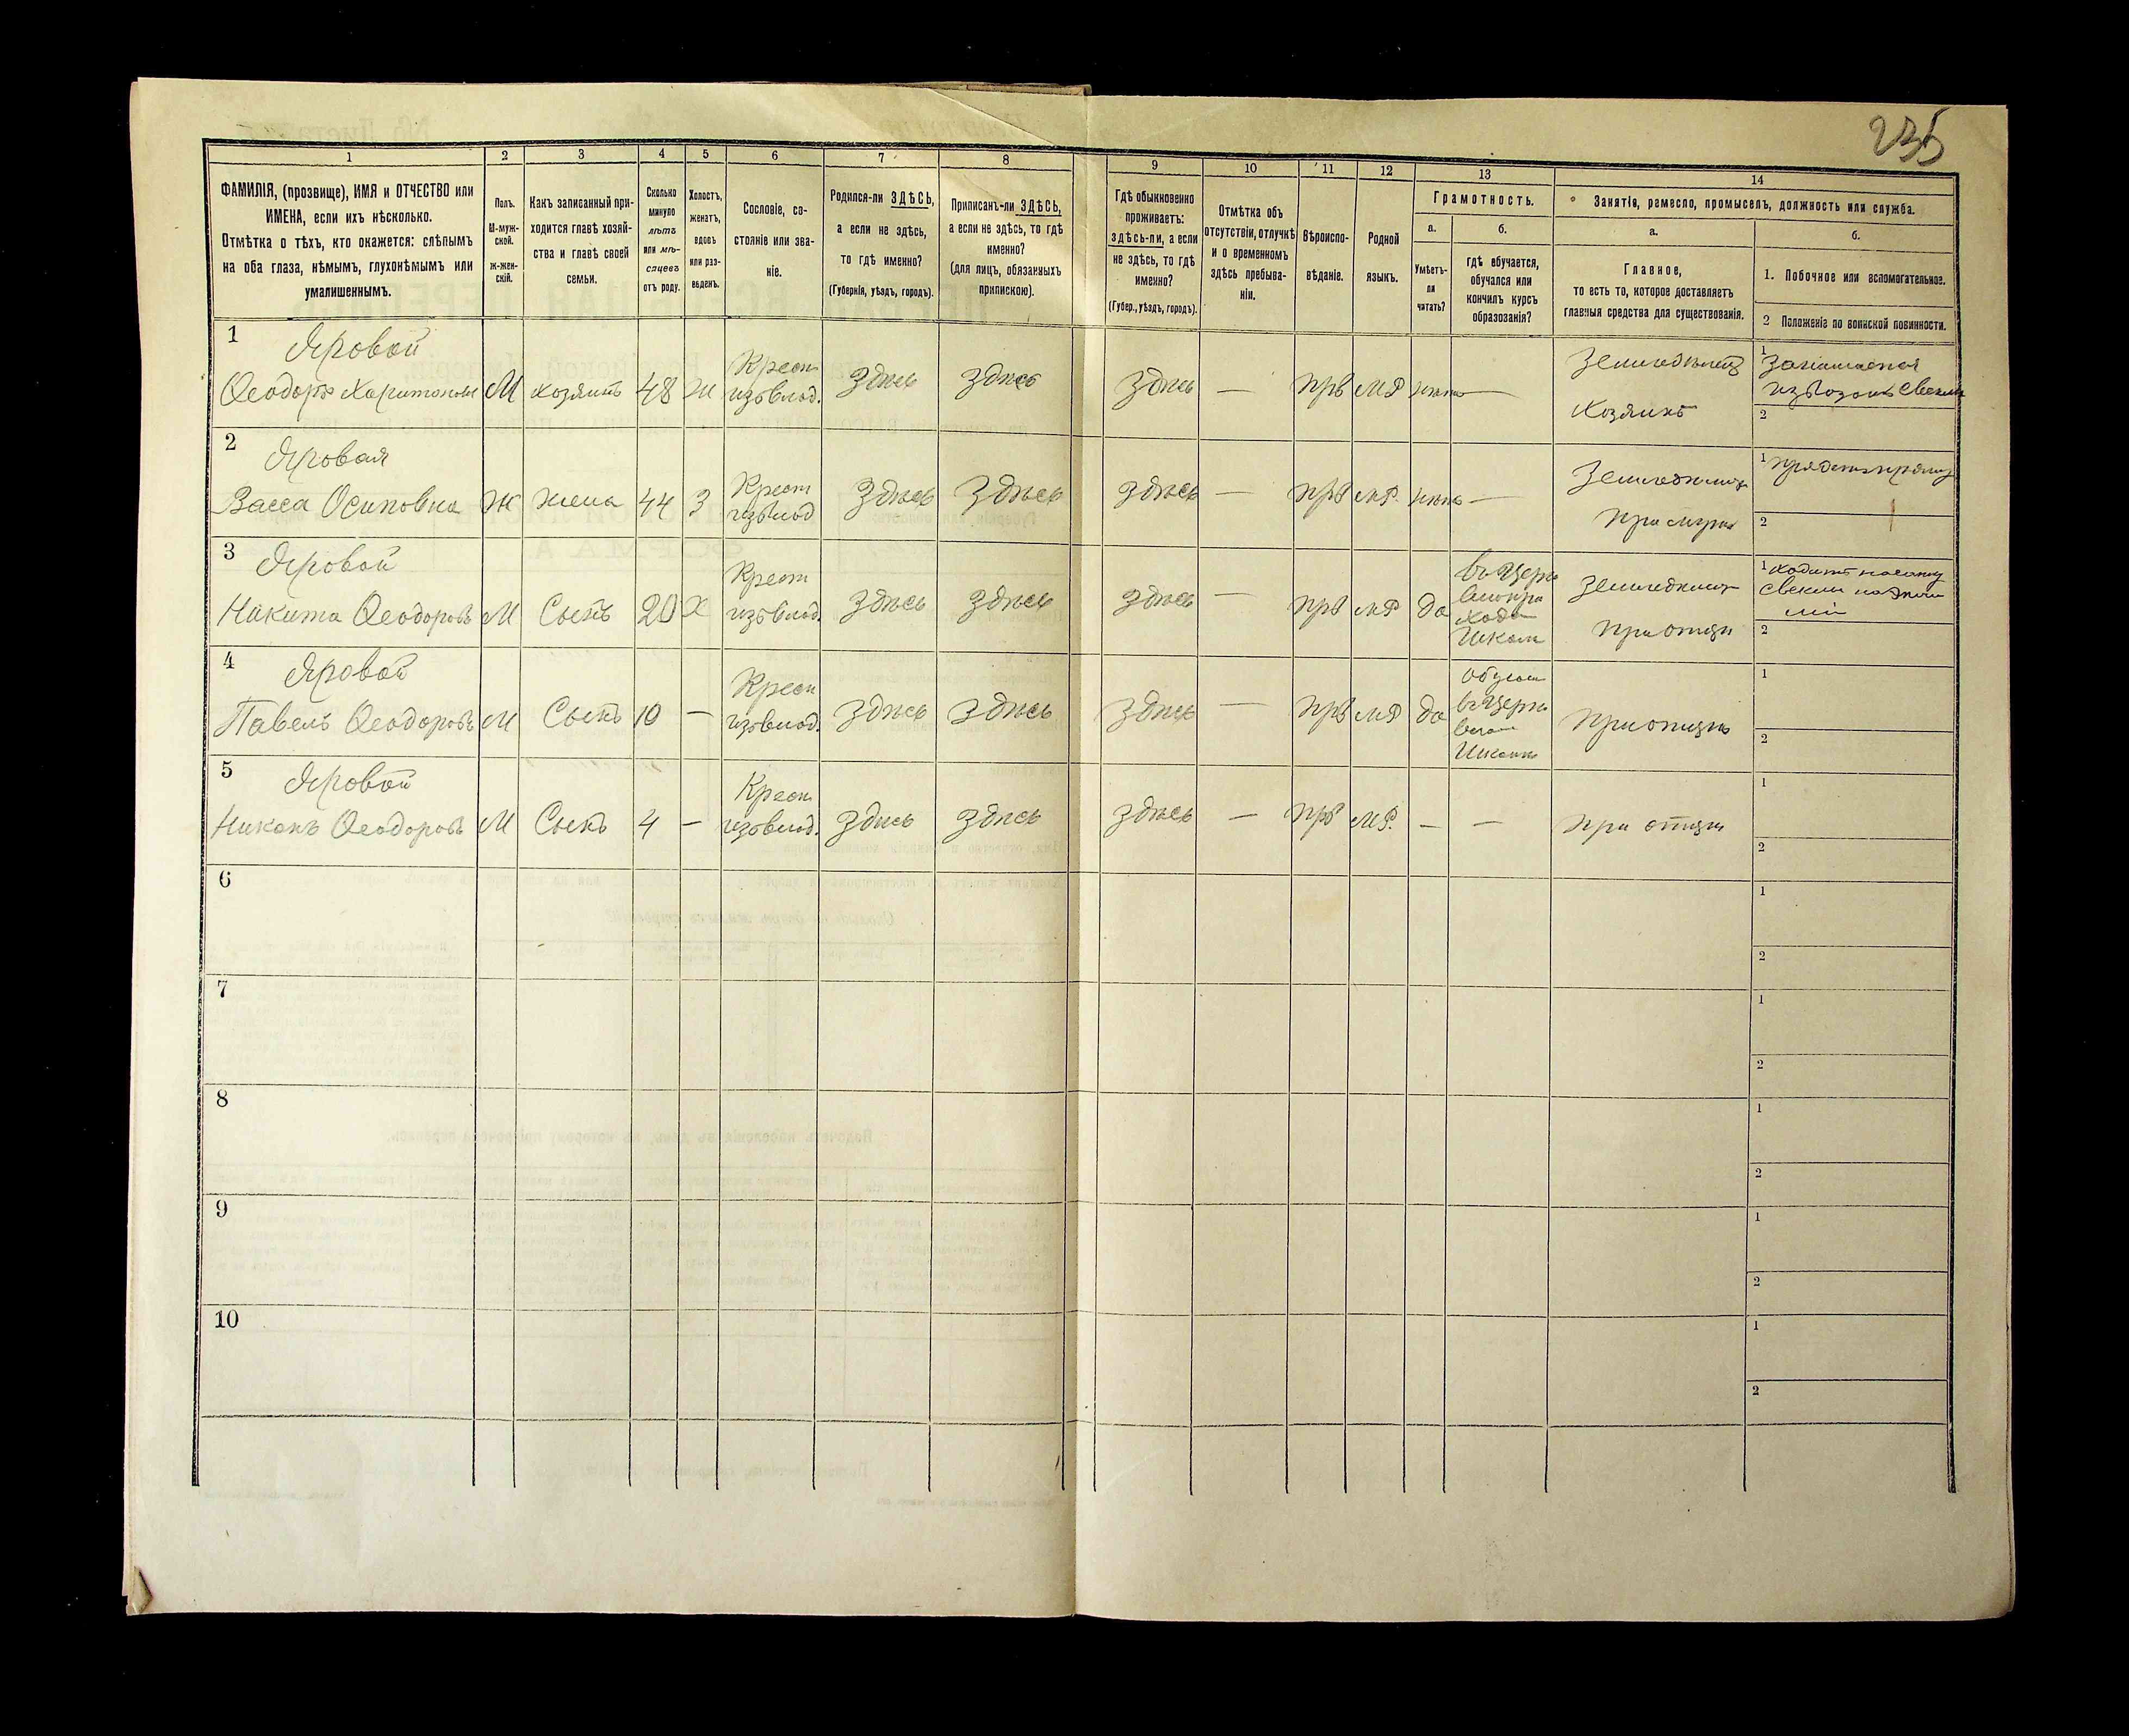 235
1 2 3 4 5 6 7 8 9 10 11 12 13 14
ФАМИЛІЯ, (прозвище), ИМЯ и ОТЧЕСТВО или
ИМЕНА, если ихъ нѣсколько.
Отмѣтка о тѣхъ, кто окажется: слѣпымъ
на оба глаза, нѣмымъ, глухонѣмымъ или
умалишеннымъ.
Полъ.
М-муж-
ской.
ж-жен-
скій.
Какъ записанный при-
ходится главѣ хозяй-
ства и главѣ своей
семьи.
Сколько
минуло
лѣтъ
или мѣ-
сяцевъ
отъ роду.
Холостъ,
женатъ,
вдовъ
или раз-
веденъ.
Сословіе, со-
стояніе или зва-
ніе.
Родился-ли ЗДѢСЬ,
а если не здѣсь,
то гдѣ именно?
(Губернія, уѣздъ, городъ).
Приписанъ-ли ЗДѢСЬ,
а если не здѣсь, то гдѣ
именно?
(для лицъ, обязанныхъ
припискою).
Гдѣ обыкновенно
проживаетъ:
здѣсь-ли, а если
не здѣсь, то гдѣ
именно?
(Губер., уѣздъ, городъ).
Отмѣтка объ
отсутствіи, отлучкѣ
и о временномъ
здѣсь пребыва-
ніи.
Вѣроиспо-
вѣданіе.
Родной
языкъ.
Грамотность.
а.
Умѣетъ-
ли
читать?
б.
гдѣ обучается,
обучался или
кончилъ курсъ
образованія?
Занятіе, ремесло, промыселъ, должность или служба.
а.
Главное,
то есть то, которое доставляетъ
главныя средства для существованія.
б.
1. Побочное или вспомогательное.
2 Положеніе по воинской повинности.
1 Яровой
Ѳеодоръ Харитоновъ М хозяинъ 48 ж Крест. изъ влад. Здѣсь Здѣсь Здѣсь — прв мр нѣтъ —
Земледѣлецъ
Хозяинъ
1 Занимается
извозомъ свеклы
2
2 Яровая
Васса Осиповна Ж жена 44 З Крест изъ влад Здѣсь Здѣсь Здѣсь — прв мр. нѣтъ —
Земледѣлецъ
при мужѣ
1 прядетъ пряжу
2
3 Яровой
Никита Ѳеодоровъ М Сынъ 20 Х Крест изъ влад. Здѣсь Здѣсь Здѣсь — прв мр да
въ Церк
вно при
ход
Школѣ
Земледѣлецъ
при отцѣ
1 ходитъ
свеклы
2
4 Яровой
Павелъ Ѳеодоровъ М Сынъ 10 — Крест изъ влад. Здѣсь Здѣсь Здѣсь — прв мр да
въ Церк
Школѣ
при отцѣ
1
2
5 Яровой
Никонъ Ѳеодоровъ М Сынъ 4 — Крест изъ влад. Здѣсь Здѣсь Здѣсь — прв мр. — —
при отцѣ
1
2
6
1
2
7
1
2
8
1
2
9
1
2
10
1
2